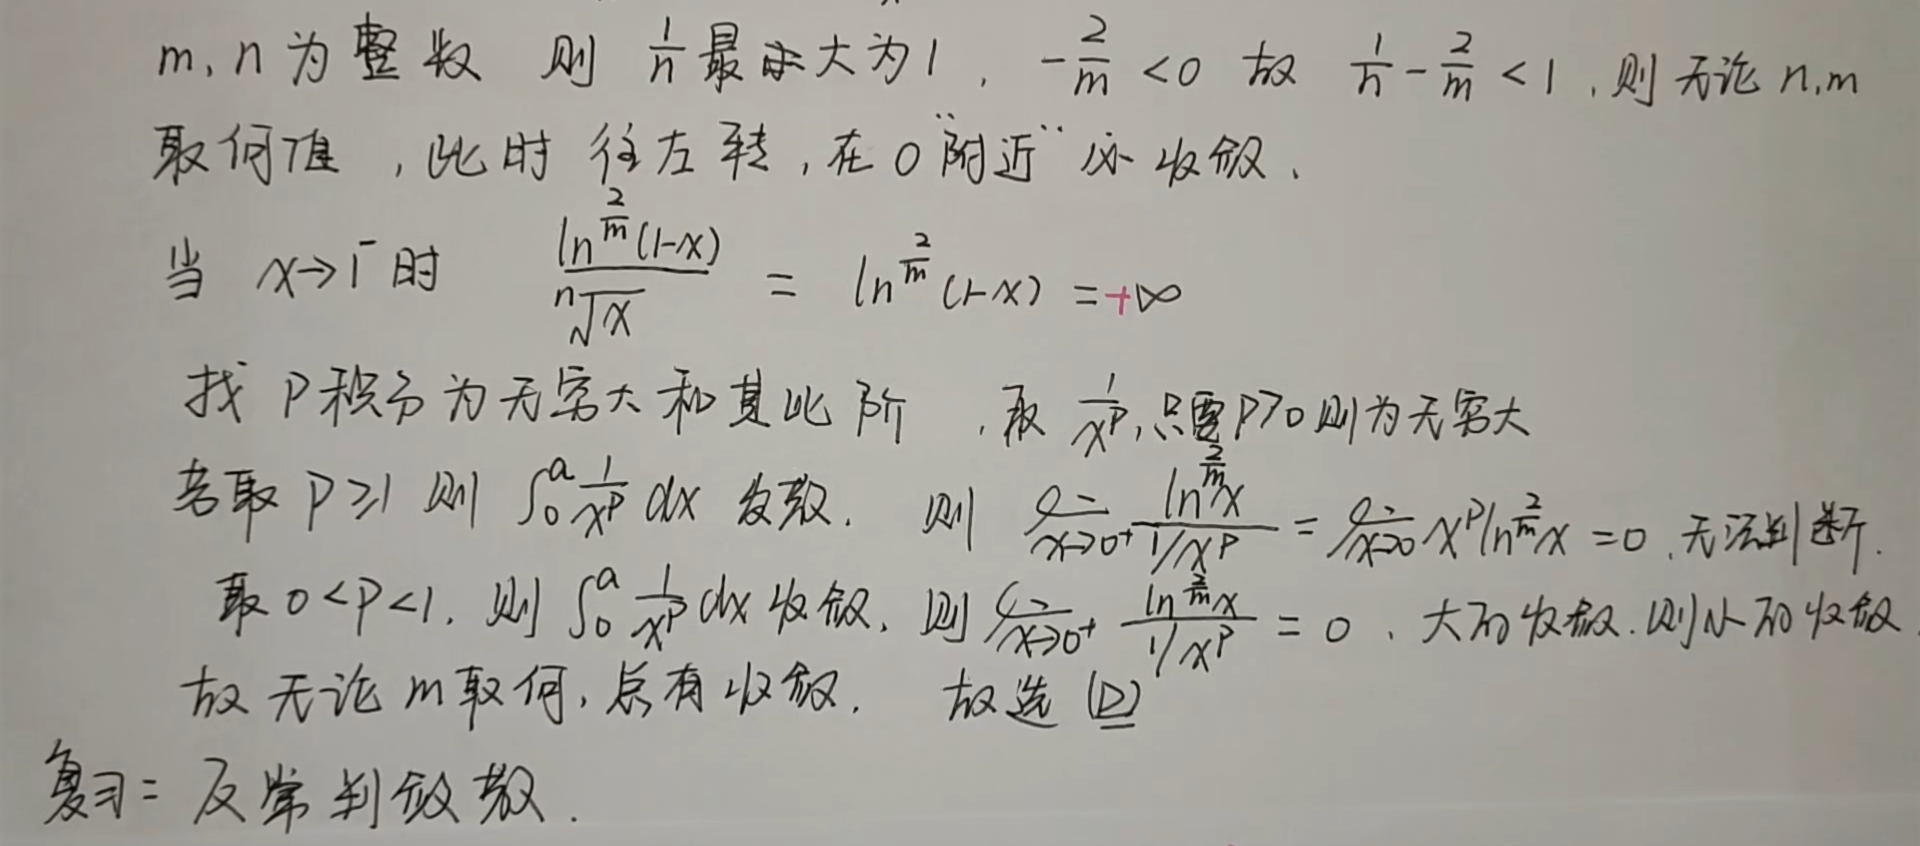 m,n 为整数 则 1/n 最大为1, -2/m <0 故 1/n - 2/m <1,则无论n,m
取何值,此时往左转,在0"附近"必收敛.
当 x→1⁻时 ln^(2/m)(1-x) / ⁿ√x = ln^(2/m)(1-x) = +∞
找P积分为无穷大和其比阶,取 1/x^p,只需P>0则为无穷大
若取 P≥1 则 ∫₀^a 1/x^p dx 发散. 则 lim x→0⁺ ln^(2/m)x / (1/x^p) = lim x→0 x^p ln^(2/m)x = 0.无法判断.
取 0<P<1, 则 ∫₀^a 1/x^p dx 收敛, 则 lim x→0⁺ ln^(2/m)x / (1/x^p) = 0. 大的收敛.则小的收敛.
故无论m取何,总有收敛. 故选(D)
复习= 反常判敛散.